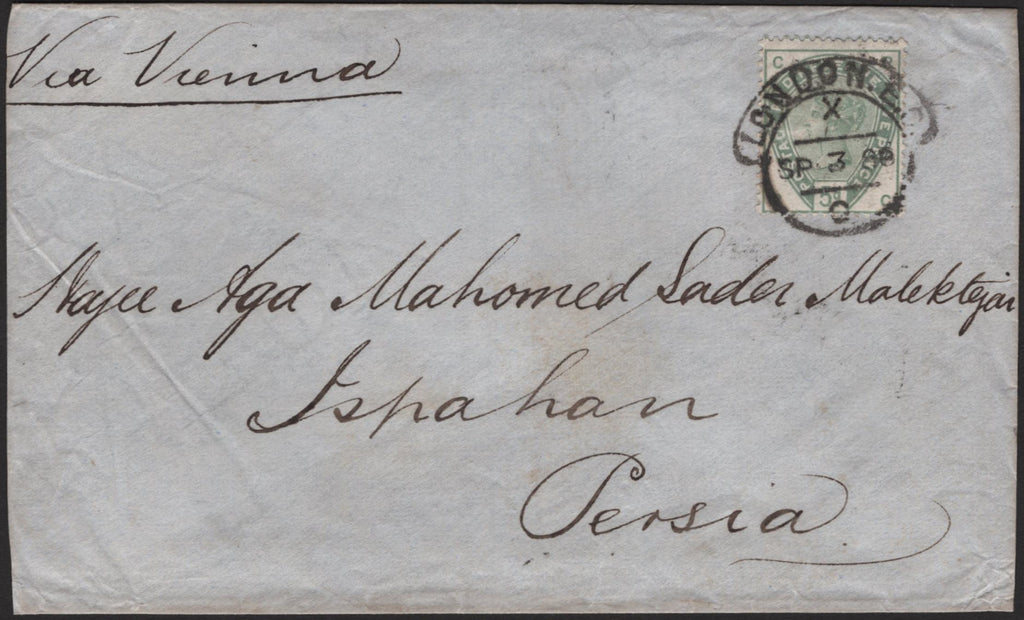 Via Vienna
LONDON. E.C
X
SP 3 86
C
Hajee Aga Mahomed Sader Malektejar
Ispahan
Persia